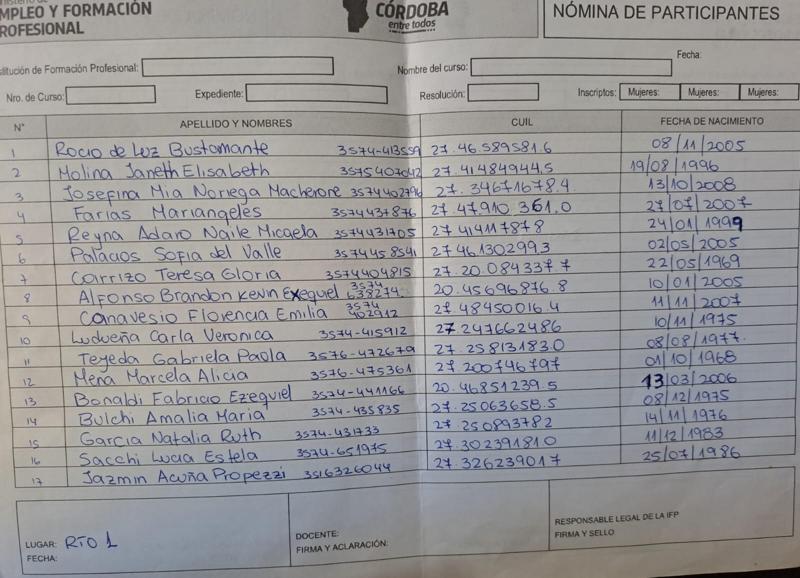 MPLEO Y FORMACIÓN
ROFESIONAL
CÓRDOBA
entre todos
NÓMINA DE PARTICIPANTES
titución de Formación Profesional:
Nombre del curso:
Fecha:
Nro. de Curso:
Expediente:
Resolución:
Inscriptos:
Mujeres:
Mujeres:
Mujeres:
N° APELLIDO Y NOMBRES CUIL FECHA DE NACIMIENTO
1 Rocio de Luz Bustamante 3574-413559 27.46.589581.6 08/11/2005
2 Molina Janeth Elisabeth 3575407042 27.41484944.5 19/08/1996
3 Josefina Mia Noriega Macherone 3574402796 27.34671678.4 13/10/2008
4 Farias Mariangeles 3574437876 27.47.910.361.0 27/07/2007
5 Reyna Adaro Naile Micaela 3574431705 27414117878 24/01/1999
6 Palacios Sofia del Valle 3574458541 27461302993 02/05/2005
7 Carrizo Teresa Gloria 3574404815 27.20.084337.7 22/05/1969
8 Alfonso Brandon Kevin Exequiel 3574 638274 20.45696876.8 10/01/2005
9 Canavesio Florencia Emilia 3574 402912 27.48450016.4 11/11/2007
10 Ludueña Carla Veronica 3574-415912 27247662486 10/11/1975
11 Tejeda Gabriela Paola 3576-472679 27.258131830 08/08/1977.
12 Mena Marcela Alicia 3576-475361 27.200746797 01/10/1968
13 Bonaldi Fabricio Ezequiel 3574-441166 20.46851239.5 13/03/2006
14 Bulchi Amalia Maria 3574-435835 27.25063658.5 08/12/1975
15 Garcia Natalia Ruth 3574-431733 27.250893782 14/11/1976
16 Sacchi Lucia Estela 3574-651975 27.302391810 11/12/1983
17 Jazmin Acuña Propezzi 3516326044 27.326239017 25/07/1986
LUGAR: RTO 1
FECHA:
DOCENTE:
FIRMA Y ACLARACIÓN:
RESPONSABLE LEGAL DE LA IFP
FIRMA Y SELLO